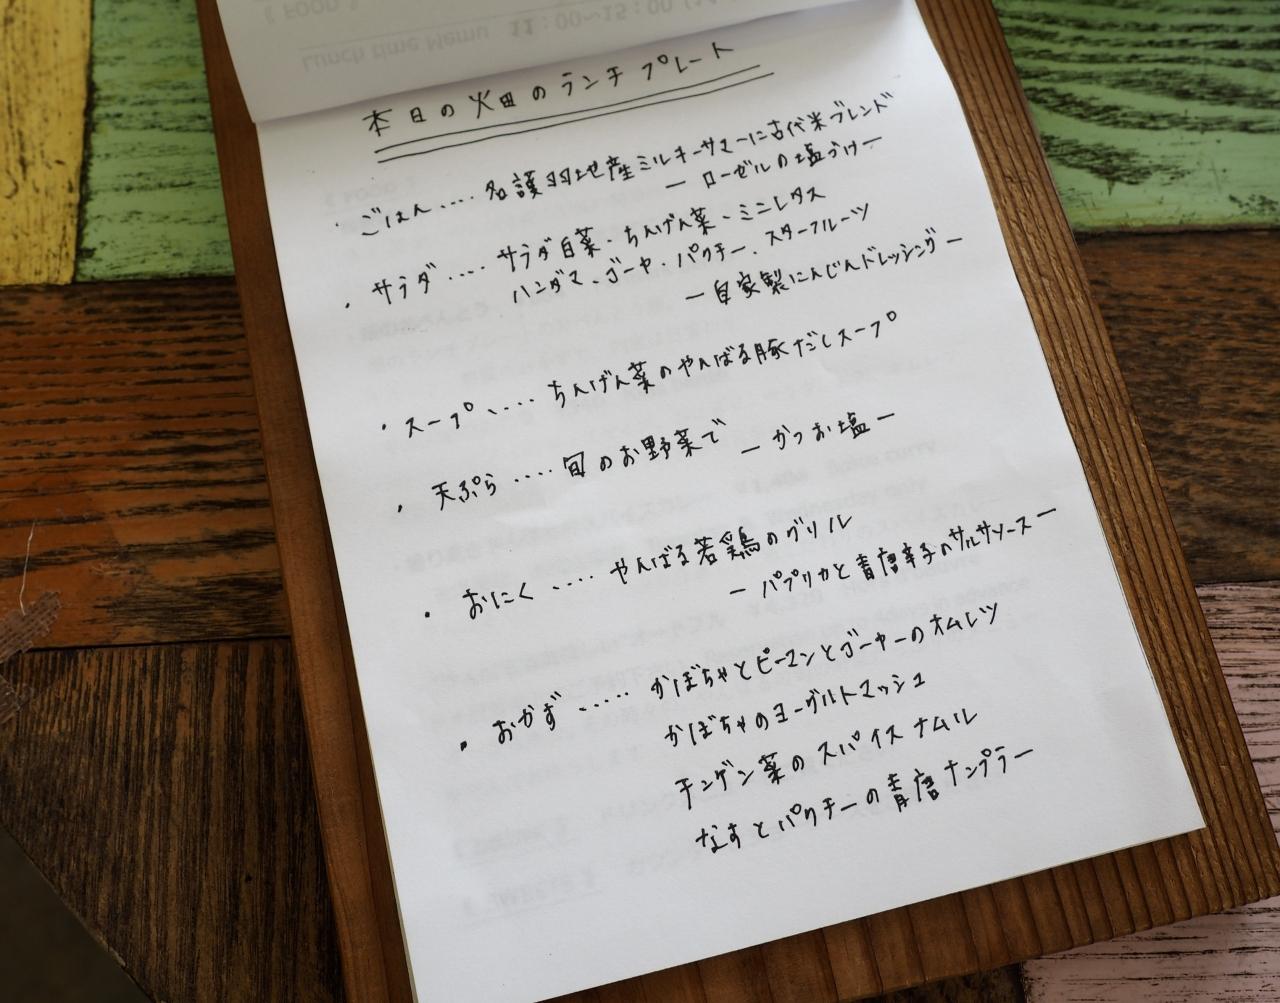 Lunch time Menu 11:00~15:00
本日の畑のランチプレート
・ごはん....名護羽地産ミルキーサマーに古代米ブレンド
ー ローゼルの塩づけー
・サラダ....サラダ白菜・ちんげん菜・ミニレタス
ハンダマ、ゴーヤ・パクチー・スターフルーツ
ー自家製にんじんドレッシングー
・スープ....ちんげん菜のやんばる豚だしスープ
・天ぷら....旬のお野菜で ーかつお塩ー
・おにく.....やんばる若鶏のグリル
ーパプリカと青唐辛子のサルサソースー
・おかず.....かぼちゃとピーマンとゴーヤーのオムレツ
かぼちゃのヨーグルトマッシュ
チンゲン菜のスパイスナムル
なすとパクチーの青唐ナンプラー